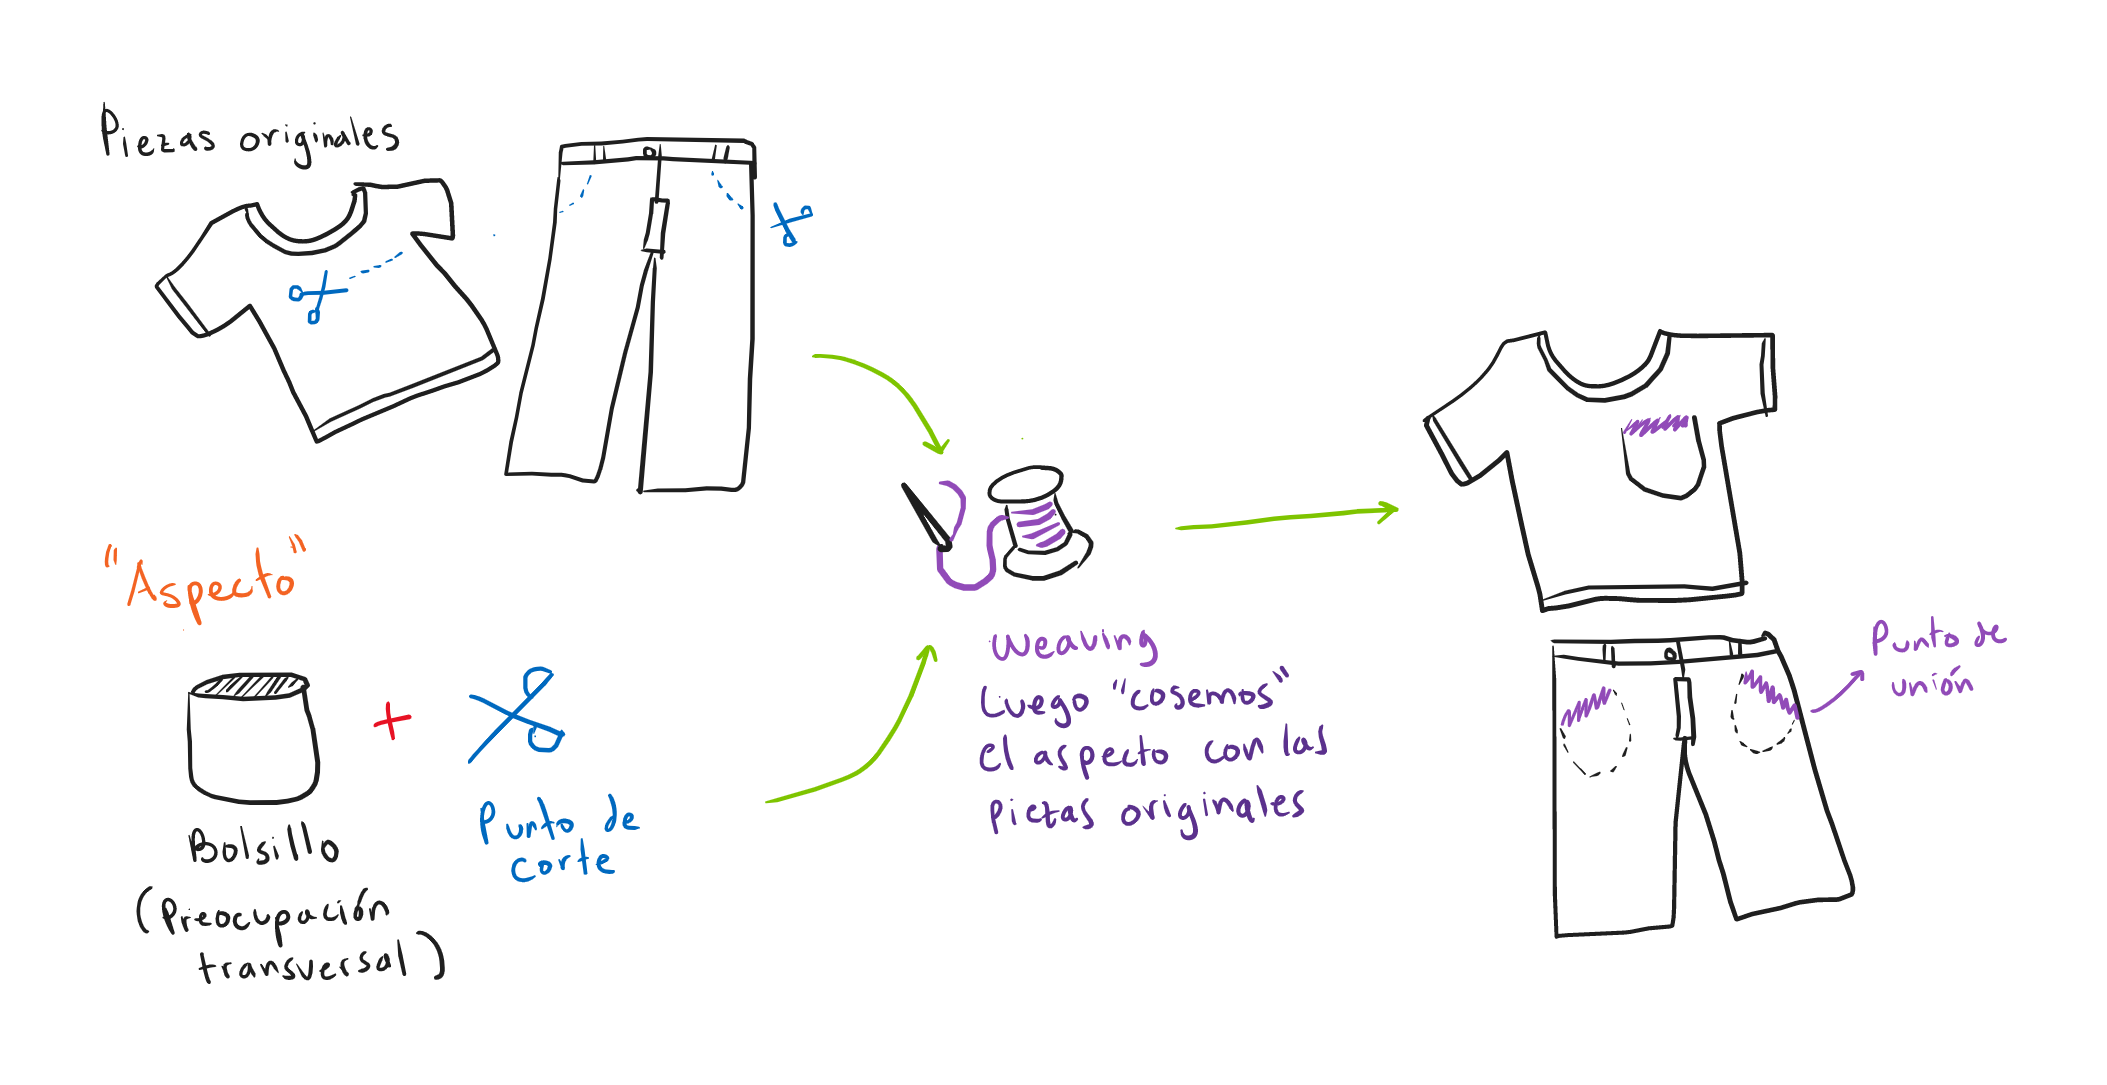 Piezas originales
"Aspecto"
Bolsillo
(Preocupación
transversal)
+
Punto de
corte
Weaving
Luego "cosemos"
el aspecto con las
piezas originales
Punto de
unión